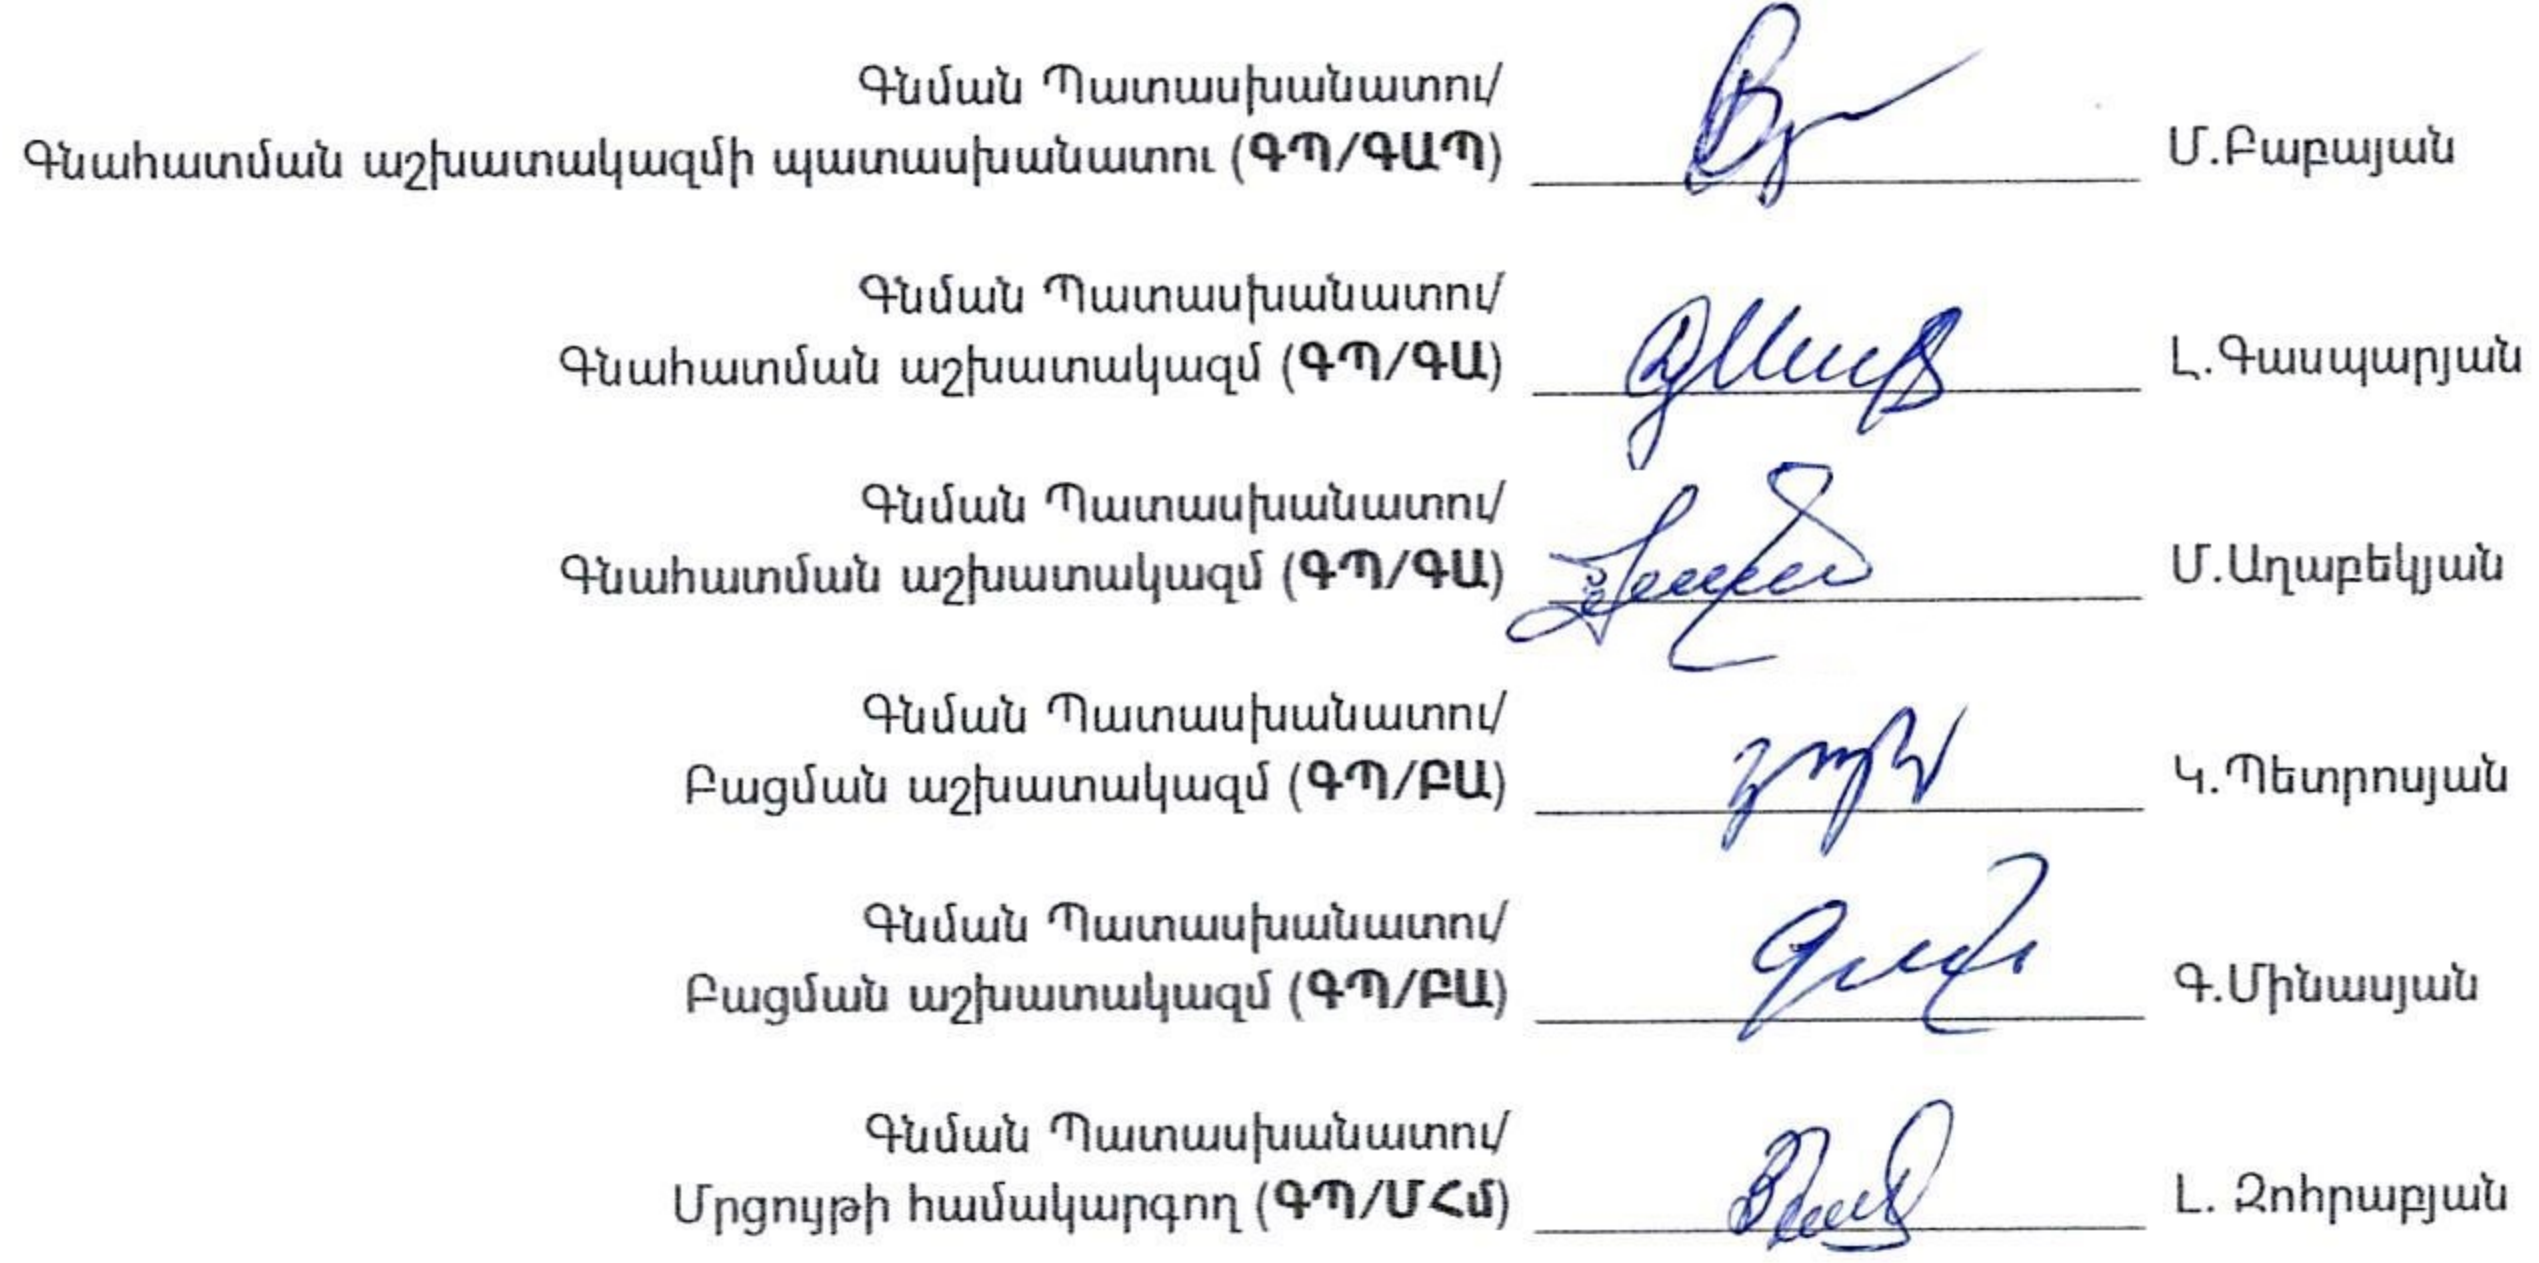 Գնման Պատասխանատու/
Գնահատման աշխատակազմի պատասխանատու (ԳՊ/ԳԱՊ) Մ.Բաբայան
Գնման Պատասխանատու/
Գնահատման աշխատակազմ (ԳՊ/ԳԱ) Լ.Գասպարյան
Գնման Պատասխանատու/
Գնահատման աշխատակազմ (ԳՊ/ԳԱ) Մ.Աղաբեկյան
Գնման Պատասխանատու/
Բացման աշխատակազմ (ԳՊ/ԲԱ) Կ.Պետրոսյան
Գնման Պատասխանատու/
Բացման աշխատակազմ (ԳՊ/ԲԱ) Գ.Մինասյան
Գնման Պատասխանատու/
Մրցույթի համակարգող (ԳՊ/ՄՀմ) Լ. Զոհրաբյան